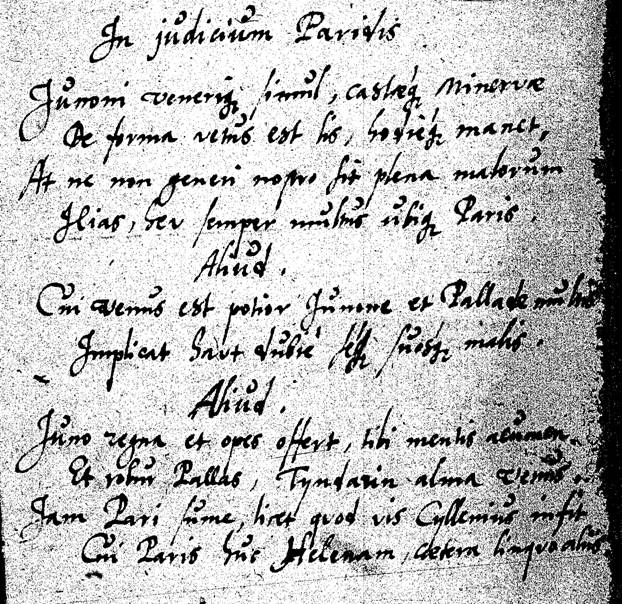 In judicium Paridis
Junoni Veneriq; simul, castæq; Minervæ
De forma vetus est lis, hodieq; manet,
At ne non generi nostro sit plena malorum
Ilias, heu semper multus ubiq; Paris.
Aliud.
Cui Venus est potior Junone et Pallade multis
Implicat haut dubiè seq; suosq; malis.
Aliud.
Juno regna et opes offert, tibi mentis acumen
Et robur Pallas, Tyndarin alma Venus.
Jam Pari sume, licet quod vis Cyllenius infit
Cui Paris huc Helenam, cætera linquo aliis.